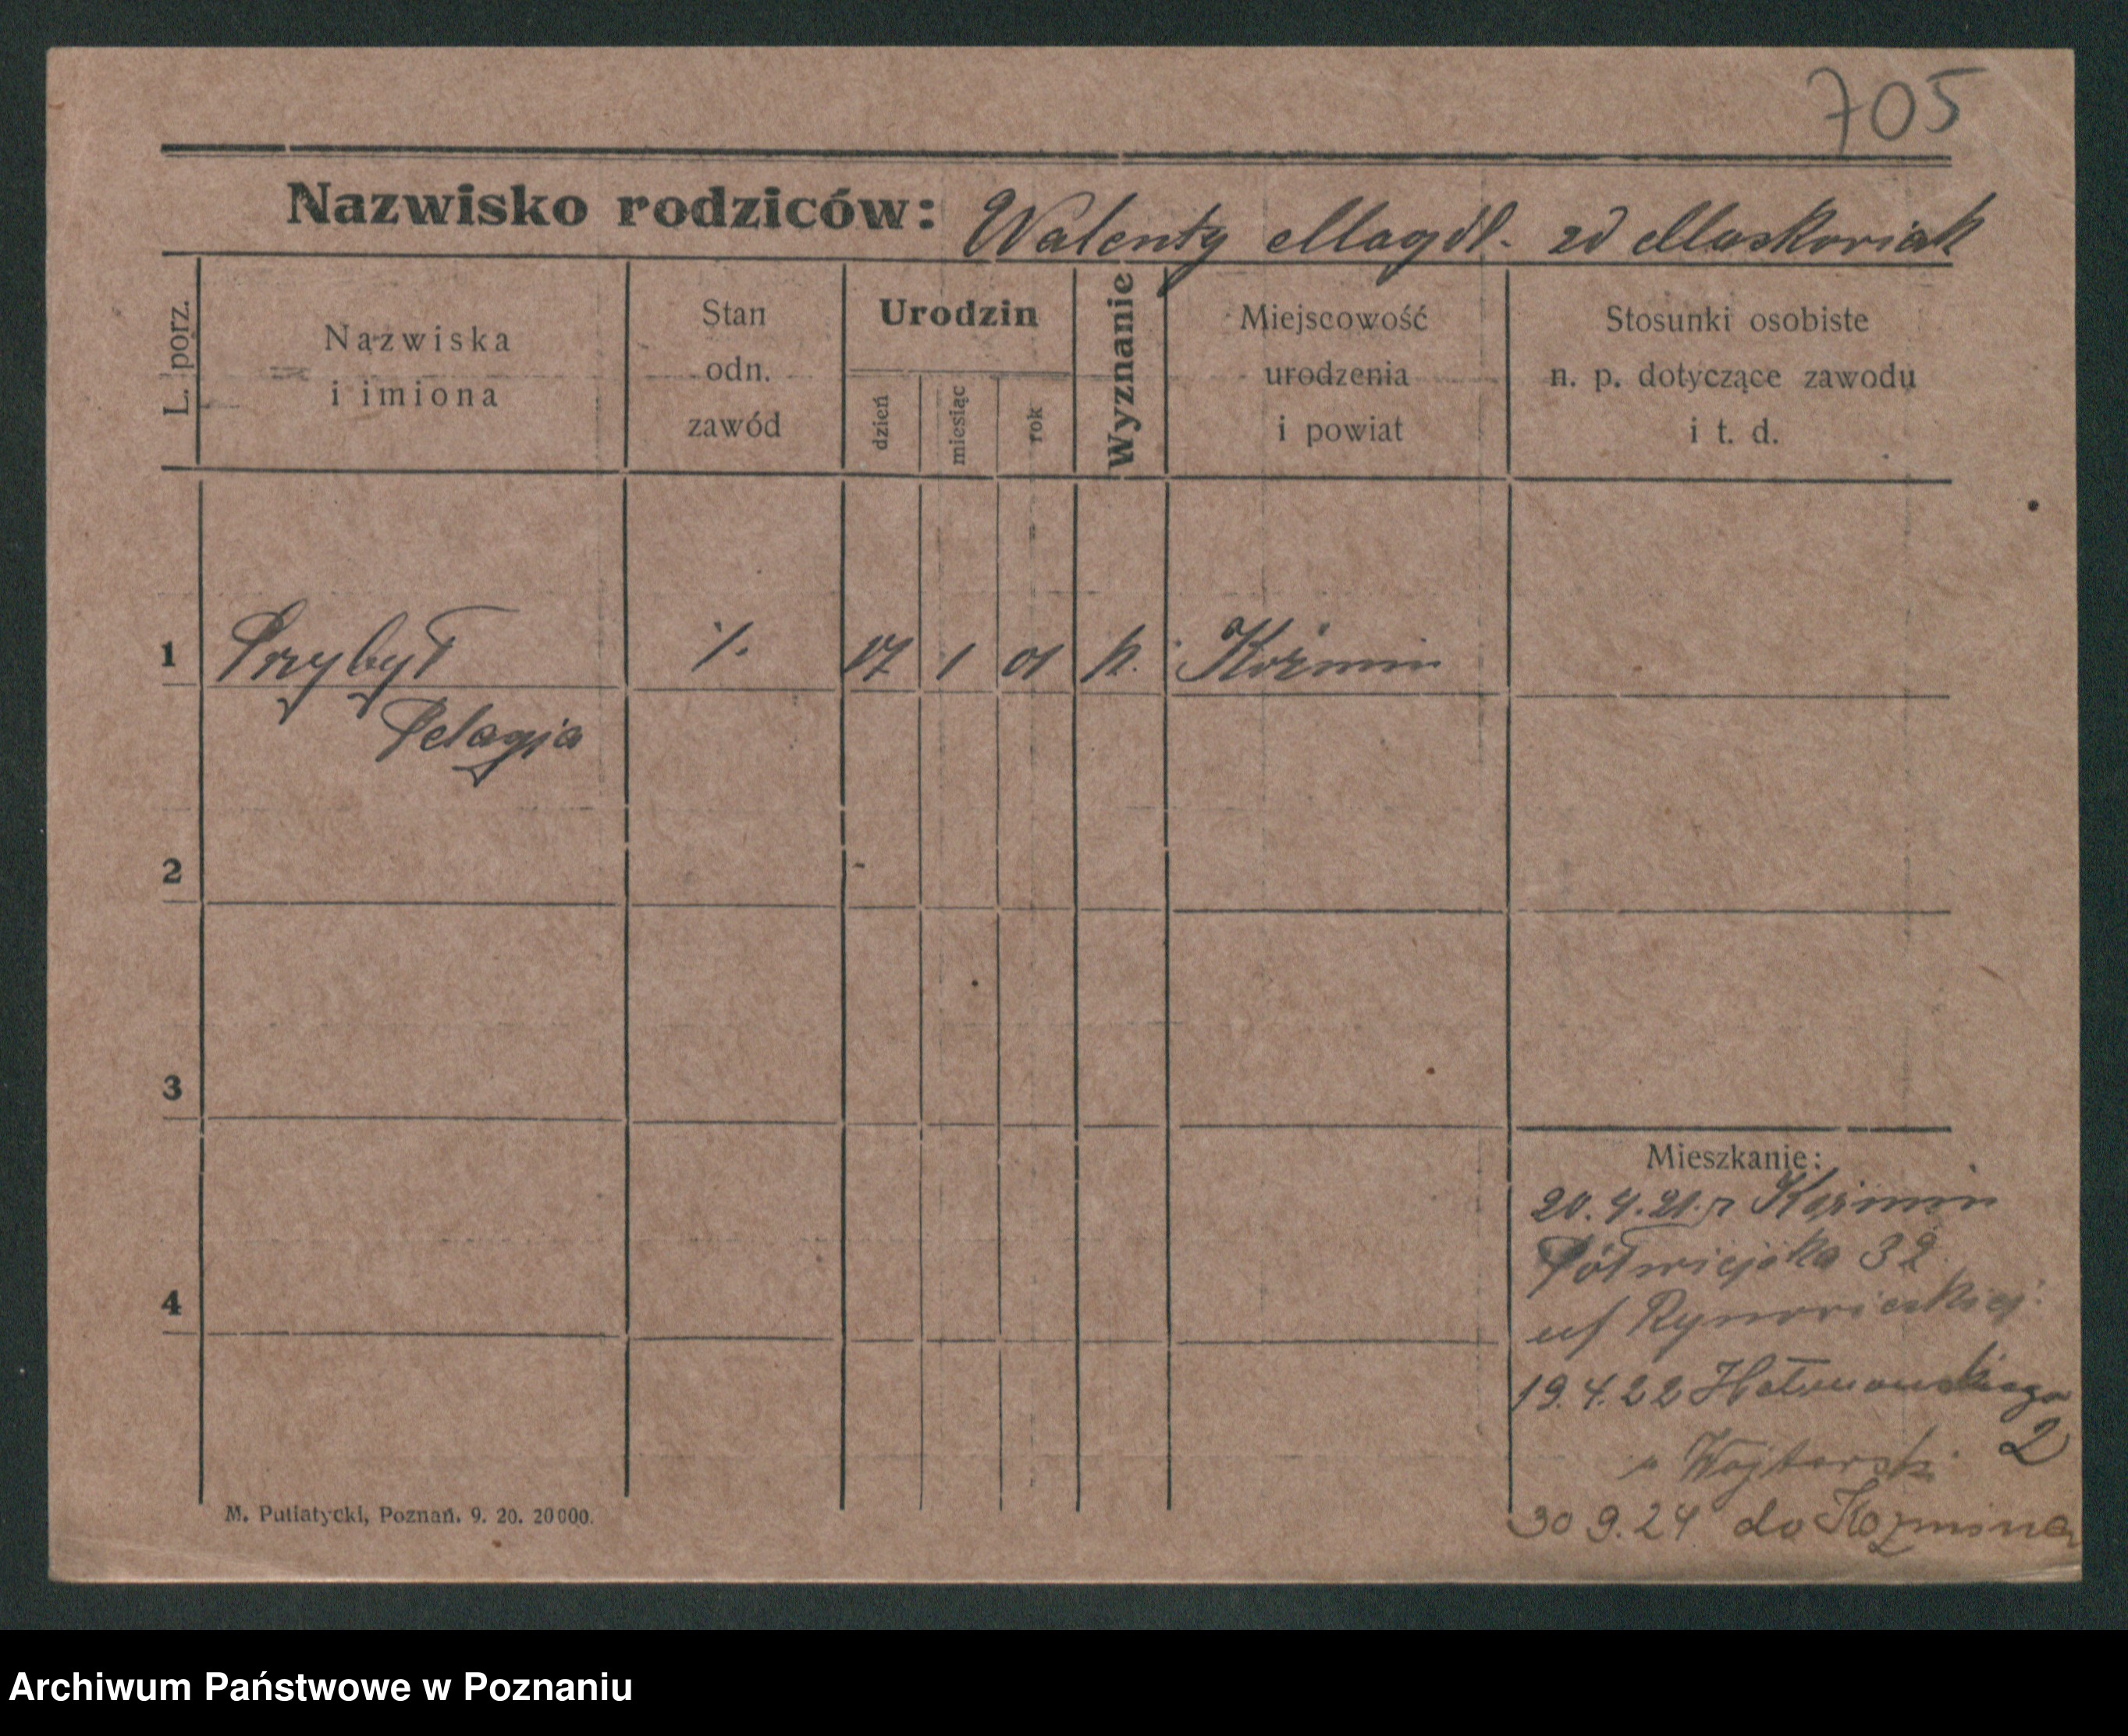 705
Nazwisko rodziców: Walenty Magdl. zd Maskoviak
L. porz.
Nazwiska
i imiona
Stan
odn.
zawód
Urodzin
dzień
miesiąc
rok
Wyznanie
Miejscowość
urodzenia
i powiat
Stosunki osobiste
n. p. dotyczące zawodu
i t. d.
1 Przybył /. 17 1 01 k. Koźmin
Pelagja
2
3
Mieszkanie:
20.4.21. z Koźmin
Półwiejska 32
4
19.4.22
2
30 9.24 do Kozmina
M. Putiatycki, Poznań. 9. 20. 20000.
Archiwum Państwowe w Poznaniu